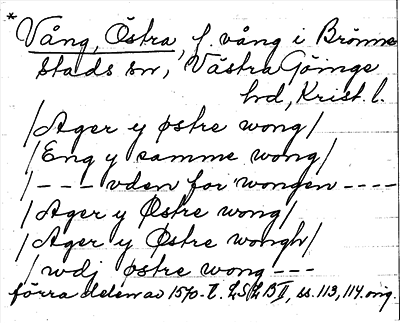 * Vång, Östra, f. vång i Brönne-
stads sn, Västra Göinge
hd, Krist. l.
/Ager y østre wong/
/Eng y samme wong/
/--- vden for wongen ----
/Ager y Østre wong/
/Ager y Østre wongh/
/wdj østre wong ---
förra delen av 1570-t. LSLB II, ss. 113, 114. orig.